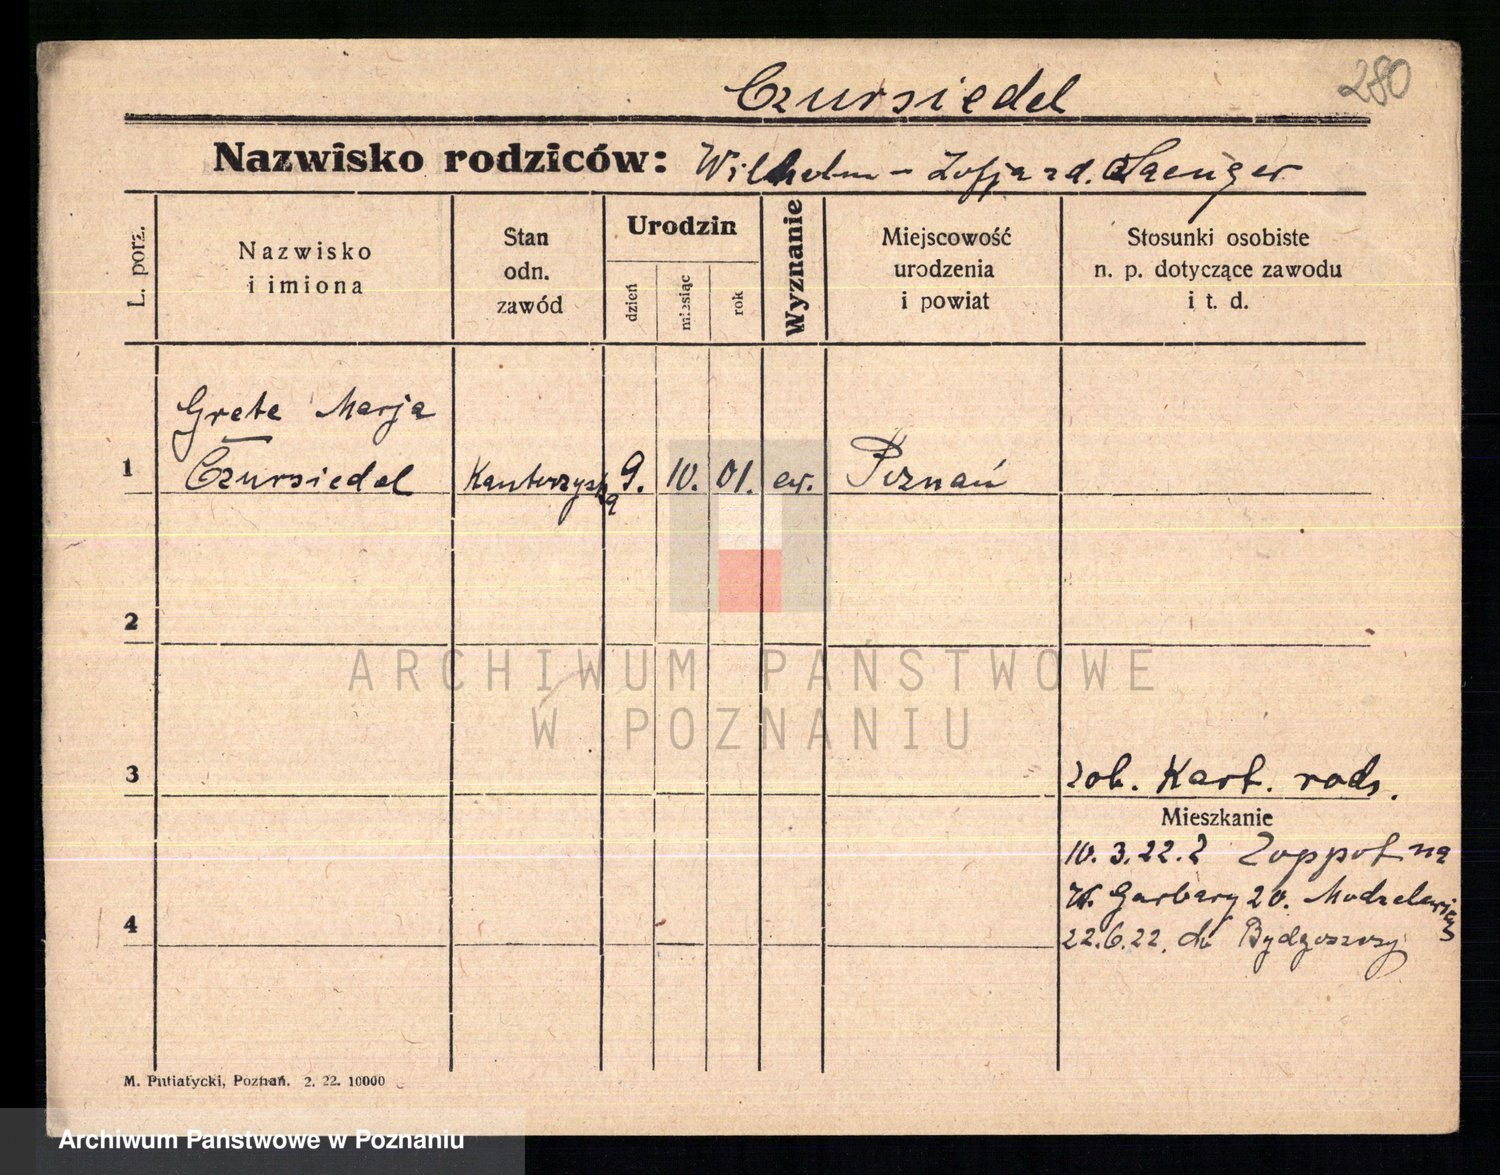 280
Czursiedel
Nazwisko rodziców: Wilhelm - Zofja zd. Saenger
L. porz.
Nazwisko
i imiona
Stan
odn.
zawód
Urodzin
dzień
miesiąc
rok
Wyznanie
Miejscowość
urodzenia
i powiat
Stosunki osobiste
n. p. dotyczące zawodu
i t. d.
Grete Marja
1 Czursiedel Kantorzystka 9. 10. 01. ew. Poznań
2
ARCHIWUM PAŃSTWOWE
W POZNANIU
3 zob. Kart. rodz.
Mieszkanie
10. 3. 22. z Zoppot na
W. Garbary 20. Modzelewscy
4
22. 6. 22. do Bydgoszczy
M. Putiatycki, Poznań. 2. 22. 10000
Archiwum Państwowe w Poznaniu